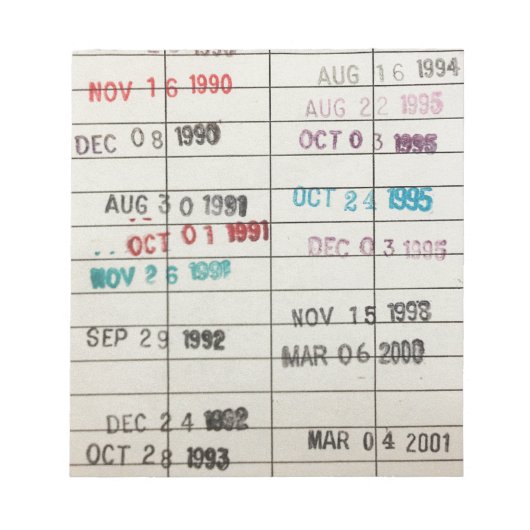 NOV 16 1990
DEC 08 1990
AUG 30 1991
OCT 01 1991
NOV 26 1991
SEP 29 1992
DEC 24 1992
OCT 28 1993
AUG 16 1994
AUG 22 1995
OCT 03 1995
OCT 24 1995
DEC 03 1995
NOV 15 1998
MAR 06 2000
MAR 04 2001